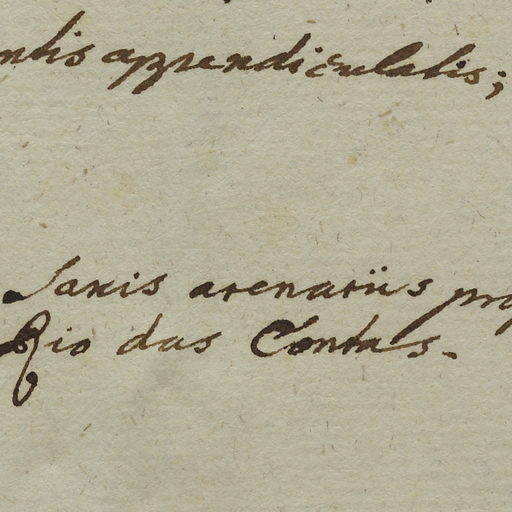 appendiculatis;
Saxis arenariis
Rio das Contas.